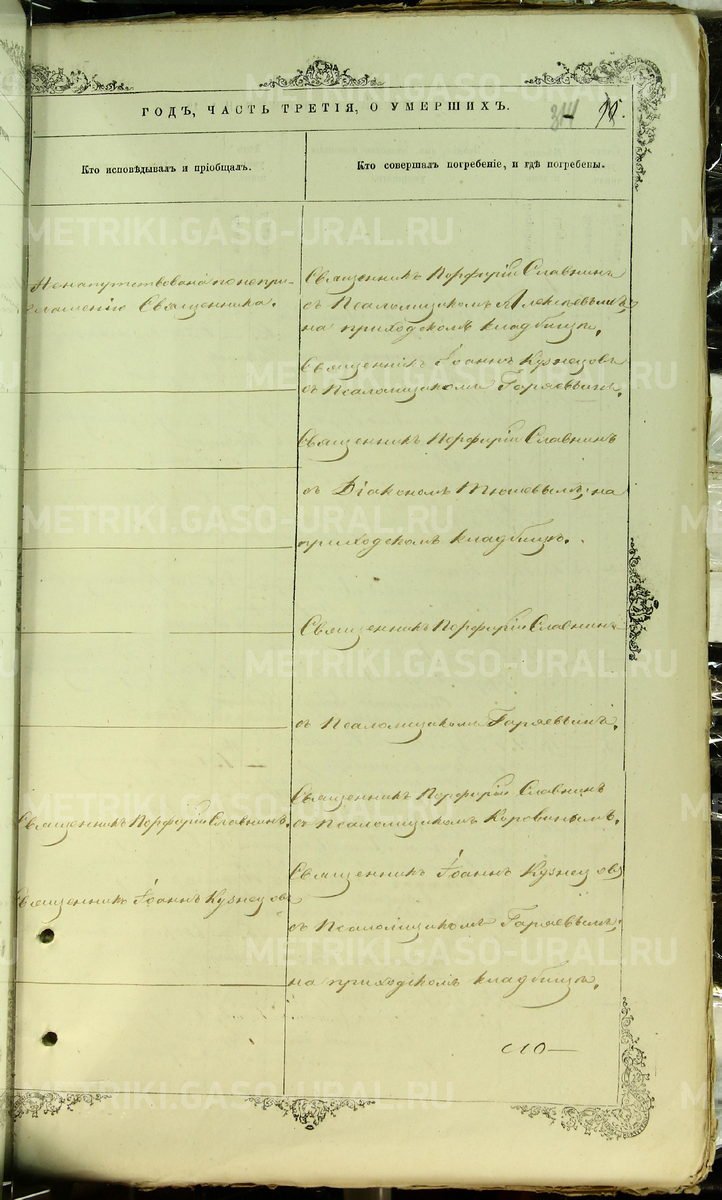 ГОДЪ, ЧАСТЬ ТРЕТІЯ, О УМЕРШИХЪ.
314
Кто исповѣдывалъ и пріобщалъ.
Кто совершалъ погребеніе, и гдѣ погребены.
Ненапутствована по непри-
глашенію Священника.
Священникъ Порфирій Славнинъ
съ Псаломщикомъ Алексѣевымъ
на приходскомъ кладбищѣ.
Священнікъ Іоаннъ Кузнецовъ
съ Псаломщикомъ Горяевымъ.
Священникъ Порфирій Славнинъ
съ Діакономъ Тюшевымъ, на
приходскомъ кладбищѣ.
Священникъ Порфирій Славнинъ
съ Псаломщикомъ Горяевымъ.
Священникъ Порфирій Славнинъ.
Священникъ Порфирій Славнинъ
съ Псаломщикомъ Коровинымъ.
Священникъ Іоаннъ Кузнецовъ
Священникъ Іоаннъ Кузнецовъ
съ Псаломщикомъ Горяевымъ
на приходскомъ кладбищѣ.
METRIKI.GASO-URAL.RU